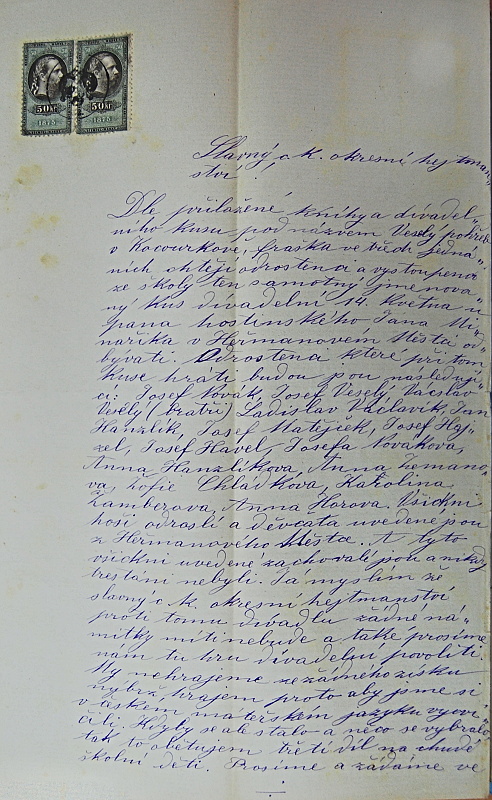 50 kr. 50 kr.
1875 1875
Slavný c. k. okresní hejtman„
ství!
Dle přiložené knihy a divadel„
ního kusu pod názvem Veselý pohřeb
v Kocourkově, fraška ve třech jedná„
ních chtějí odrostenci a vystoupenci
ze školy ten samotný jmenova„
ný kus divadelní 14. Května u
pana hostinského Jana Mi„
nařika v Heřmanovém Městci od„
bývati. Odrostenci které při tom
kuse hráti budou jsou následují„
cí: Josef Novák, Josef Veselý, Václav
Veselý (bratři) Ladislav Václavík, Jan
Hanzlík, Josef Matějíček, Josef Haj„
zel, Josef Havel, Josefa Nováková,
Anna Hanzlíkova, Anna Zemano„
va, Žofie Chládkova, Karolina
Žamberova, Anna Horova. Všickni
hoši odroslí a děvčata uvedené jsou
z Heřmanového Města. A tyto
všickni uvedené zachovalí jsou a nikdy
trestáni nebyli. Já myslím že
slavný c. k. okresní hejtmanství
proti tomu divadlu žádné ná„
mitky míti nebude a také prosíme
nám tu hru divadelní povoliti.
My nehrajeme ze žádného zisku
nýbrž hrajem proto aby jsme se
v českém mateřském jazyku vycvi„
čili. Kdyby se ale stalo a něco se vybralo
tak to obětujem třetí díl na chudé
školní děti. Prosíme a žádáme ve